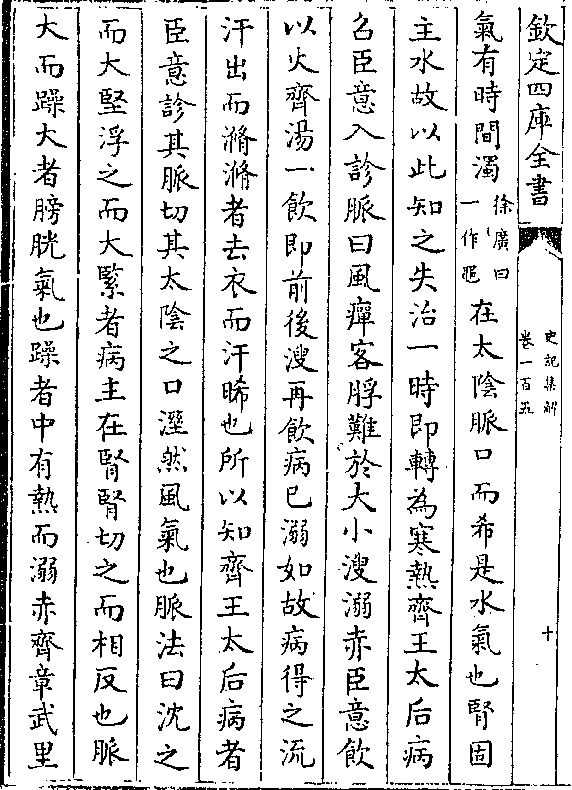 欽定四庫全書
史記集解
卷一百五
十
氣有時間濁徐廣曰一作黽在太陰脈口而希是水氣也腎固
主水故以此知之失治一時即轉為寒熱齊王太后病
召臣意入診脈曰風癉客脬難於大小溲溺赤臣意飲
以火齊湯一飲即前後溲再飲病已溺如故病得之流
汗出而滫滫者去衣而汗晞也所以知齊王太后病者
臣意診其脈切其太陰之口溼然風氣也脈法曰沈之
而大堅浮之而大緊者病主在腎腎切之而相反也脈
大而躁大者膀胱氣也躁者中有熱而溺赤齊章武里